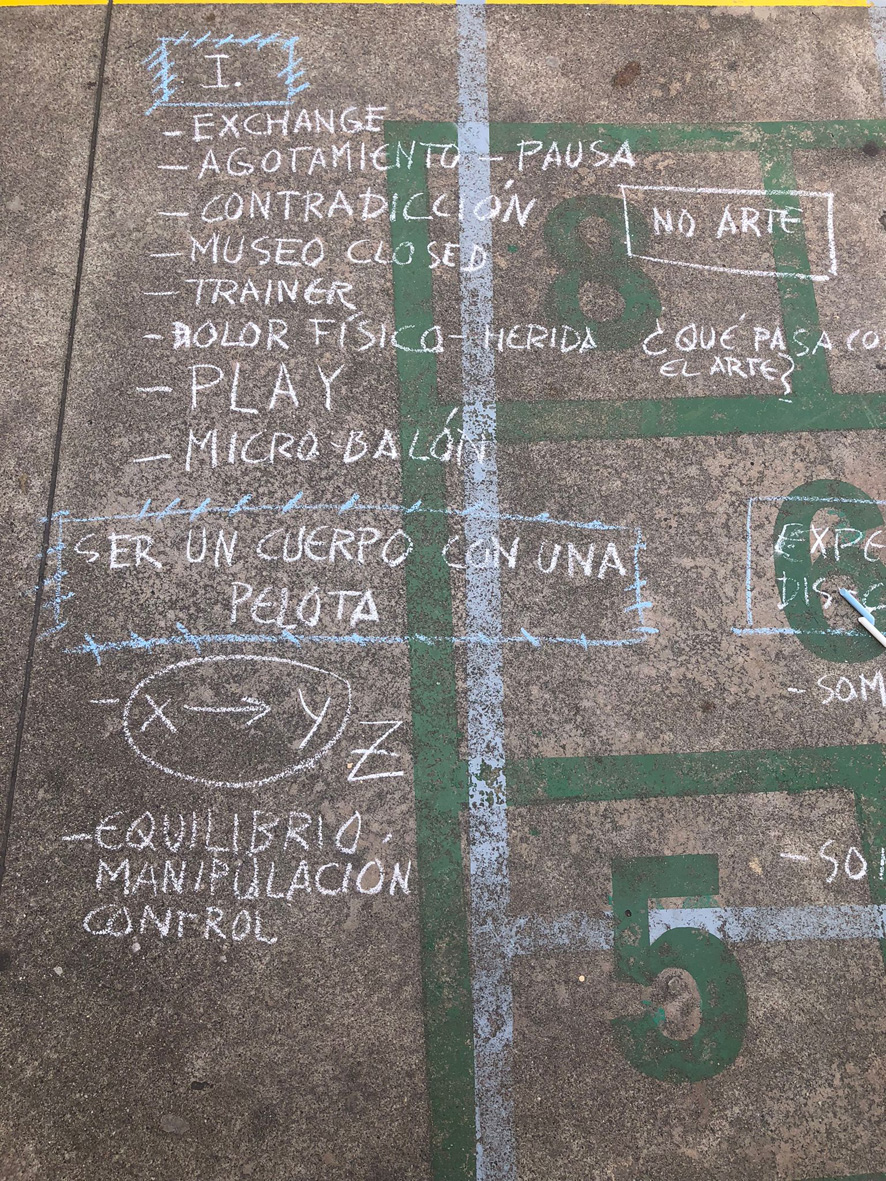 I.
- EXCHANGE
- AGOTAMIENTO - PAUSA
- CONTRADICCIÓN
- MUSEO CLOSED
- TRAINER
- DOLOR FÍSICO - HERIDA
- PLAY
- MICRO-BALÓN
SER UN CUERPO CON UNA
PELOTA
- X → Y
Z
- EQUILIBRIO,
MANIPULACIÓN
CONTROL
8
NO ARTE
¿QUÉ PASA CO
EL ARTE?
6
EXPE
DIS
- SOM
- SO
5